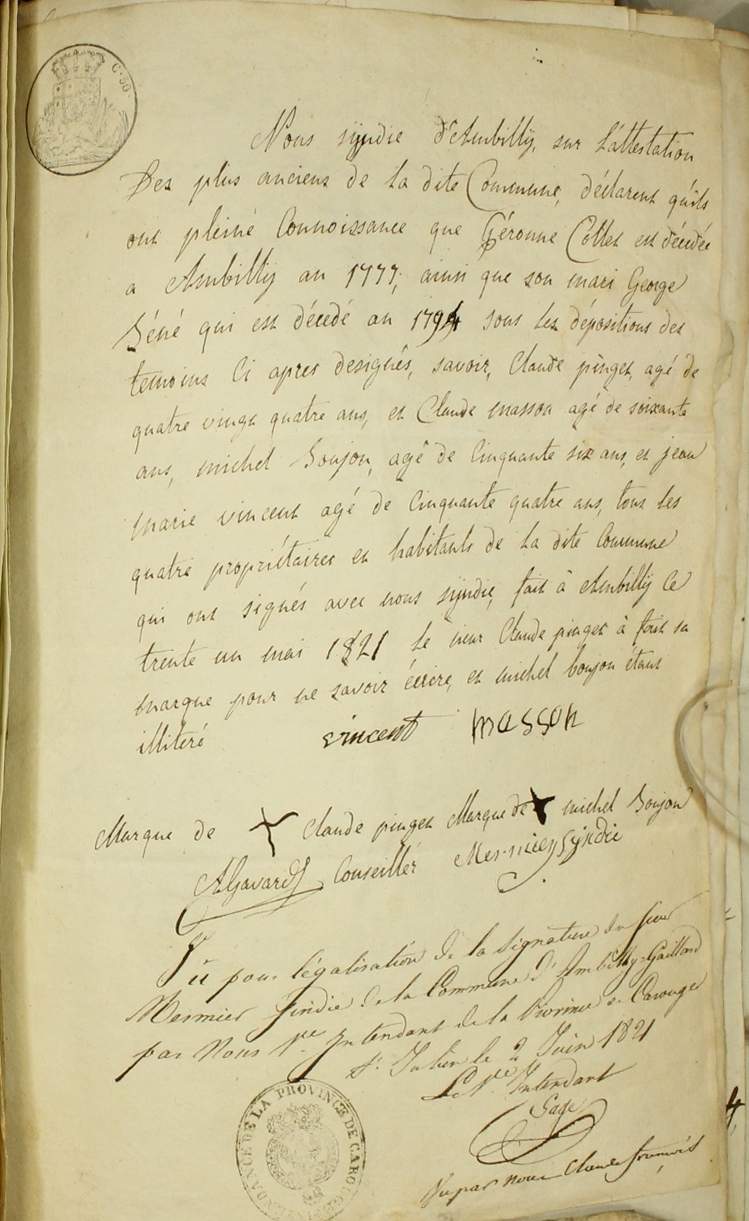 C. 50
Nous syndic d'Ambilly, sur L'attestation
Des plus anciens de La dite Commune, déclarent qu'ils
ont pleine Connoissance que Péronne Collet est décédée
a Ambilly an 1777, ainsi que son mari George
Séné qui est décedé an 1794 sous Les dépositions des
temoins Ci apres designés, savoir, Claude pinget agé de
quatre vingt quatre ans, et Claude masson agé de soixante
ans, michel Boujon, agé de Cinquante six ans, et jean
marie vincent agé de Cinquante quatre ans, tous Les
quatre propriétaires et habitants de La dite Commune
qui ont signés avec nous syndic, fait à Ambilly Ce
trente un mai 1821 Le sieur Claude pinget à fait sa
marque pour ne savoir écrire, et michel boujon étant
illiteré vincent masson
Marque de Claude pinget Marque de michel Boujon
AGavard Conseiller Mermier syndic
Vu pour légalisation de la signature du sieur
Mermier sindic de la Commune d'Ambilly-Gaillard
par Nous Vce Intendant de la Province de Carouge
St Julien le 2 Juin 1821
Le Vce Intendant
Gage
Vu par nous Claude françois
DE LA PROVINCE DE CAROUGE